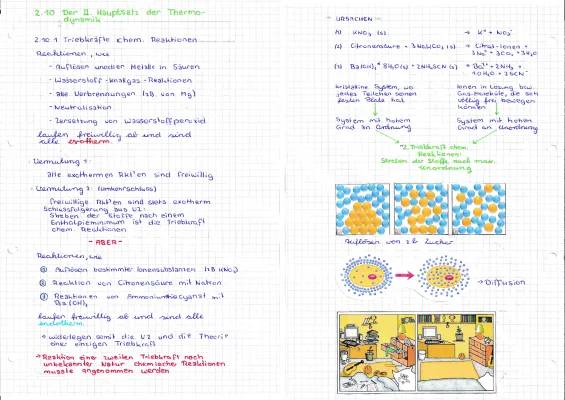 2.10 Der II. Hauptsatz der Thermo-
dynamik
2.10.1 Triebkräfte chem. Reaktionen
Reaktionen, wie
- Auflösen unedler Metalle in Säuren
- Wasserstoff-Knallgas-Reaktionen
- alle Verbrennungen (zB. von Mg)
- Neutralisation
- Zersetzung von Wasserstoffperoxid
laufen freiwillig ab und sind
alle exotherm.
Vermutung 1:
alle exothermen Rkt'en sind freiwillig
Vermutung 2: (Umkehrschluss)
freiwillige Rkt'en sind stets exotherm
Schlussfolgerung aus V2:
Streben der Stoffe nach einem
Enthalpieminimum ist die Triebkraft
chem. Reaktionen
- ABER -
Reaktionen, wie
① Auflösen bestimmter Ionensubstanzen (zB KNO3)
② Reaktion von Citronensäure mit Natron
③ Reaktionen von Ammoniumthiocyanat mit
Ba(OH)2
laufen freiwillig ab und sind alle
endotherm.
→ widerlegen somit die V2 und die Theorie
einer einzigen Triebkraft
→ Reaktion einer zweiten Triebkraft noch
unbekannter Natur chemischer Reaktionen
musste angenommen werden
URSACHEN:
(1) KNO3 (s) → K+ + NO3-
(2) Citronensäure + 3NaHCO3 (s) → Citrat-Ionen +
3Na+ + 3CO2 + 3H2O
(3) Ba(OH)2 * 8H2O (s) + 2NH4SCN (s) → Ba2+ + 2NH3 +
10H2O + 2SCN-
kristalline System, wo
jedes Teilchen seinen
festen Platz hat
Ionen in Lösung bzw.
Gas-Moleküle, die sich
völlig frei bewegen
können
System mit hohem
Grad an Ordnung
System mit hohem
Grad an Unordnung
2. Triebkraft chem.
Reaktionen:
Streben der Stoffe nach max.
Unordnung
Auflösen von zB Zucker
→ Diffusion